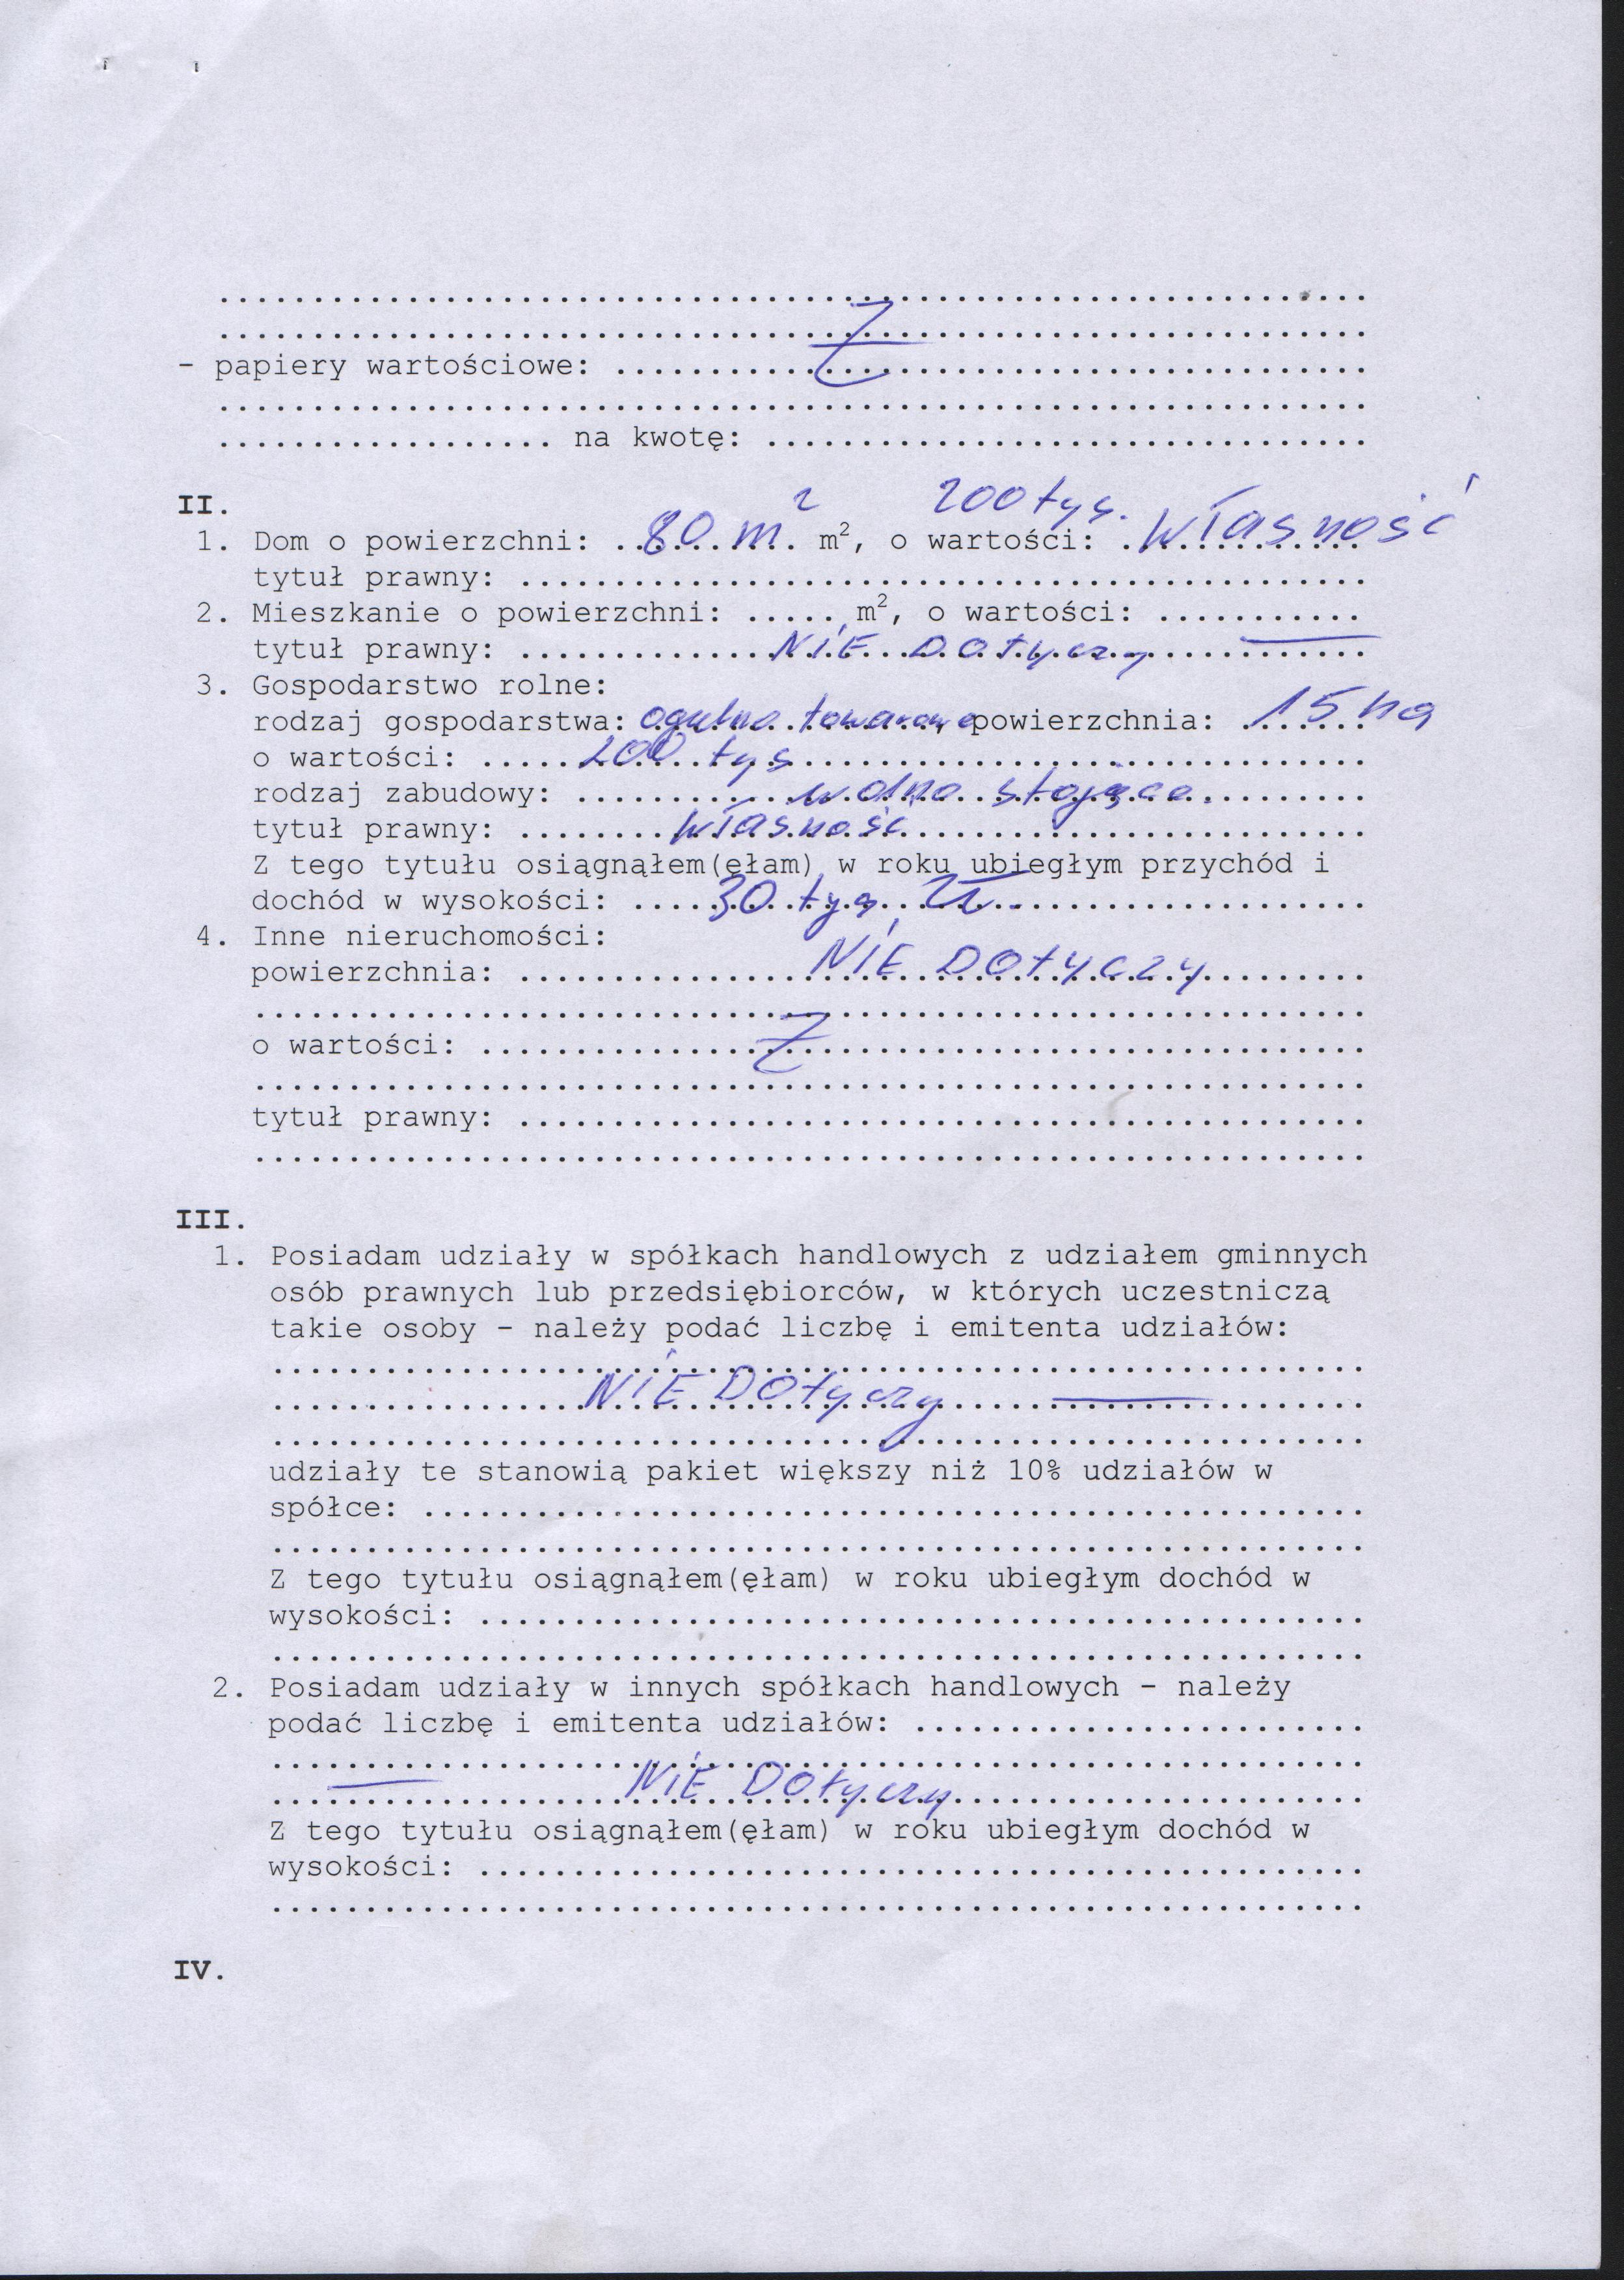 ........................................................
........................................................
- papiery wartościowe: ........................................
........................................................
.................. na kwotę: ................................
II.
200 tys.
1. Dom o powierzchni: 80 m² m², o wartości: Własność
tytuł prawny: .............................................
2. Mieszkanie o powierzchni: ..... m², o wartości: ...........
tytuł prawny: NIE DOtyczy —
3. Gospodarstwo rolne:
rodzaj gospodarstwa: ogulno towarowe powierzchnia: 15 ha
o wartości: 200 tys
rodzaj zabudowy: wolno stojąca.
tytuł prawny: Własność
Z tego tytułu osiągnąłem(ęłam) w roku ubiegłym przychód i
dochód w wysokości: 30 tyś zł.
4. Inne nieruchomości:
powierzchnia: NIE DOtyczy
........................................................
o wartości: Z
........................................................
tytuł prawny: .............................................
........................................................
III.
1. Posiadam udziały w spółkach handlowych z udziałem gminnych
osób prawnych lub przedsiębiorców, w których uczestniczą
takie osoby - należy podać liczbę i emitenta udziałów:
........................................................
NIE DOtyczy —
........................................................
udziały te stanowią pakiet większy niż 10% udziałów w
spółce: ..................................................
........................................................
Z tego tytułu osiągnąłem(ęłam) w roku ubiegłym dochód w
wysokości: ...............................................
........................................................
2. Posiadam udziały w innych spółkach handlowych - należy
podać liczbę i emitenta udziałów: ........................
........................................................
— NIE DOtyczy
Z tego tytułu osiągnąłem(ęłam) w roku ubiegłym dochód w
wysokości: ...............................................
........................................................
IV.